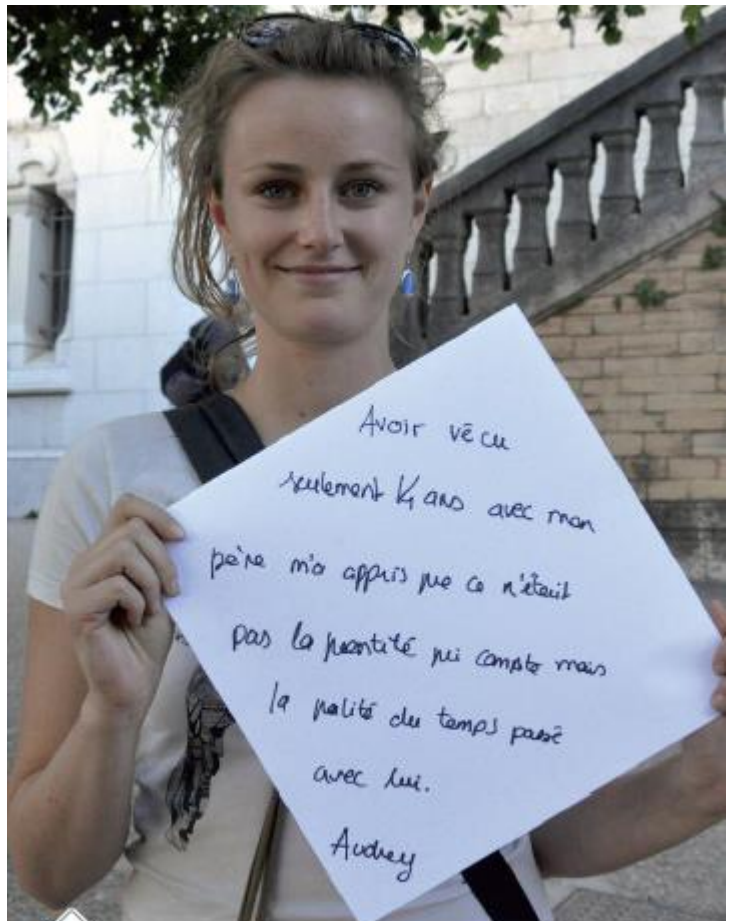 Avoir vécu
seulement 14 ans avec mon
père m'a appris que ce n'était
pas la quantité qui compte mais
la qualité du temps passé
avec lui.
Audrey